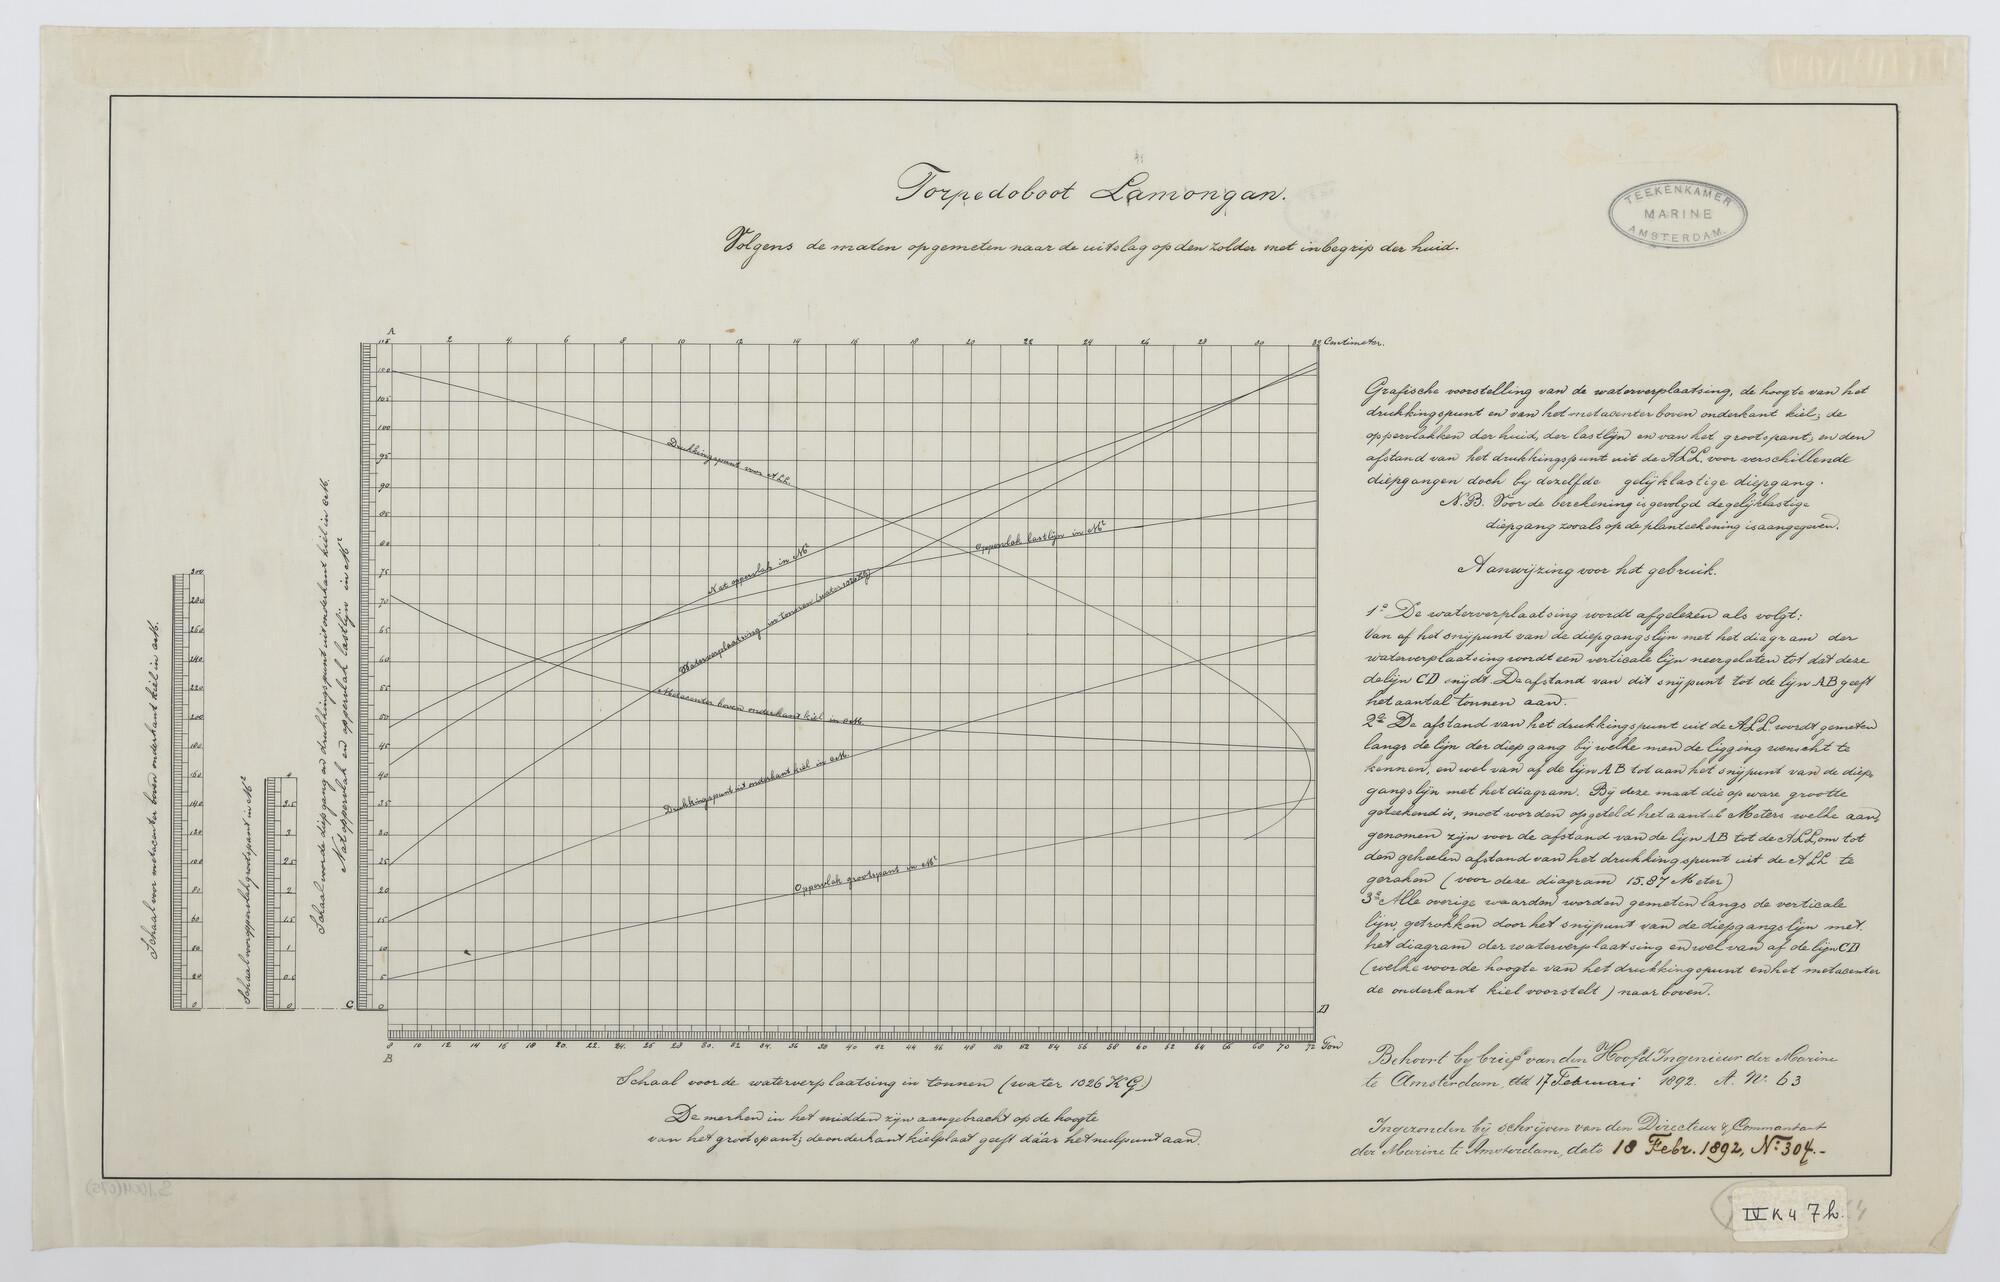 Torpedoboot Lamongan.
Volgens de maten opgemeten naar de uitslag op den zolder met inbegrip der huid.
TEEKENKAMER
MARINE
AMSTERDAM.
A
2 4 6 8 10 12 14 16 18 20 22 24 26 28 30 32 Centimeter.
115
110
105
100
95
90
85
80
75
70
65
60
55
50
45
40
35
30
25
20
15
10
5
0
C
D
B
Drukkingspunt voor ALL.
Nat oppervlak in M²
Oppervlak lastlijn in M²
Waterverplaatsing in tonnen (water 1026 KG)
Metacenter boven onderkant kiel in cM.
Drukkingspunt uit onderkant kiel in cM.
Oppervlak grootspant in M²
Schaal voor metacenter boven onderkant kiel in cM.
300
280
260
240
220
200
180
160
140
120
100
80
60
40
20
0
Schaal voor oppervlak grootspant in M²
4
3.5
3
2.5
2
1.5
1
0.5
0
Schaal voor de diepgang en drukkingspunt uit onderkant kiel in cM.
Nat oppervlak en oppervlak lastlijn in M²
10 12 14 16 18 20. 22. 24. 26 28 30. 32 34. 36 38 40 42 44 46 48 50 52 54 56 58 60 62 64 66 68 70 72 Ton
Schaal voor de waterverplaatsing in tonnen (water 1026 KG)
De merken in het midden zijn aangebracht op de hoogte
van het grootspant; de onderkant kielplaat geeft dáár het nulpunt aan.
Grafische voorstelling van de waterverplaatsing, de hoogte van het
drukkingspunt en van het metacenter boven onderkant kiel; de
oppervlakken der huid, der lastlijn en van het grootspant; en den
afstand van het drukkingspunt uit de ALL. voor verschillende
diepgangen doch bij dezelfde gelijklastige diepgang.
N.B. Voor de berekening is gevolgd de gelijklastige
diepgang zooals op de planteekening is aangegeven.
Aanwijzing voor het gebruik.
1º De waterverplaatsing wordt afgelezen als volgt:
Van af het snijpunt van de diepgangslijn met het diagram der
waterverplaatsing wordt een verticale lijn neergelaten tot dat deze
de lijn CD snijdt. De afstand van dit snijpunt tot de lijn AB geeft
het aantal tonnen aan.
2º De afstand van het drukkingspunt uit de ALL. wordt gemeten
langs de lijn der diepgang bij welke men de ligging wenscht te
kennen, en wel van af de lijn AB tot aan het snijpunt van de diep-
gangslijn met het diagram. Bij deze maat die op ware grootte
geteekend is, moet worden opgeteld het aantal Meters welke aan-
genomen zijn voor de afstand van de lijn AB tot de ALL, om tot
den geheelen afstand van het drukkingspunt uit de ALL te
geraken (voor deze diagram 15.87 Meter)
3º Alle overige waarden worden gemeten langs de verticale
lijn, getrokken door het snijpunt van de diepgangslijn met
het diagram der waterverplaatsing en wel van af de lijn CD
(welke voor de hoogte van het drukkingspunt en het metacenter
de onderkant kiel voorstelt) naar boven.
Behoort bij brief van den Hoofd Ingenieur der Marine
te Amsterdam, dd 17 Februari 1892. A. Nº 63
Ingezonden bij schrijven van den Directeur & Commandant
der Marine te Amsterdam, dato 18 Febr. 1892, Nº 304.-
IV K 4 7h.
S.1004(075)